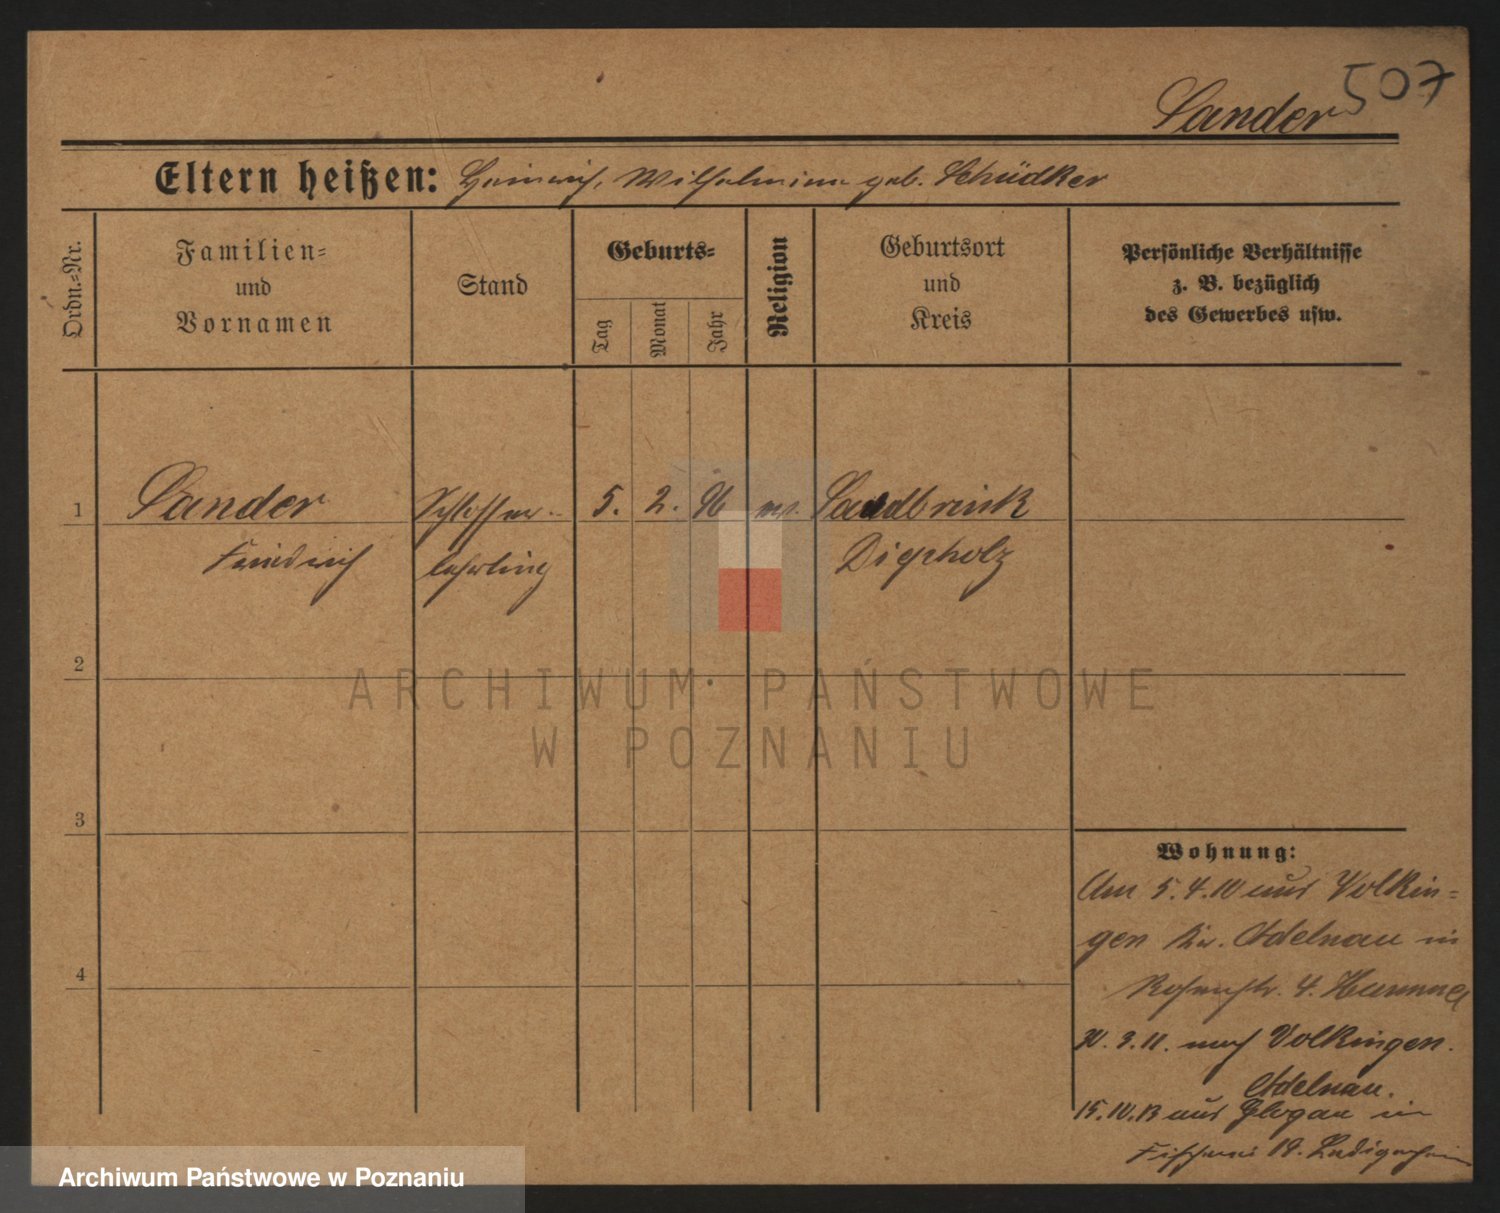 507
Sander
Eltern heißen: Heinrich, Wilhelmine geb. Schüdker
Ordn.-Nr.
Familien-
und
Vornamen
Stand
Geburts-
Tag
Monat
Jahr
Religion
Geburtsort
und
Kreis
Persönliche Verhältnisse
z. B. bezüglich
des Gewerbes usw.
1 Sander Schlosser- 5. 2. 96 ev. Sandbrink
Friedrich lehrling Diepholz
2
ARCHIWUM PAŃSTWOWE
W POZNANIU
3
Wohnung:
Am 5.4.10 aus Volkin-
gen Kr. Adelnau in
4
Rosenstr. 4.
30.3.11. nach Volkingen.
Adelnau.
15.10.13 aus Glogau in
Fischerei 19.
Archiwum Państwowe w Poznaniu